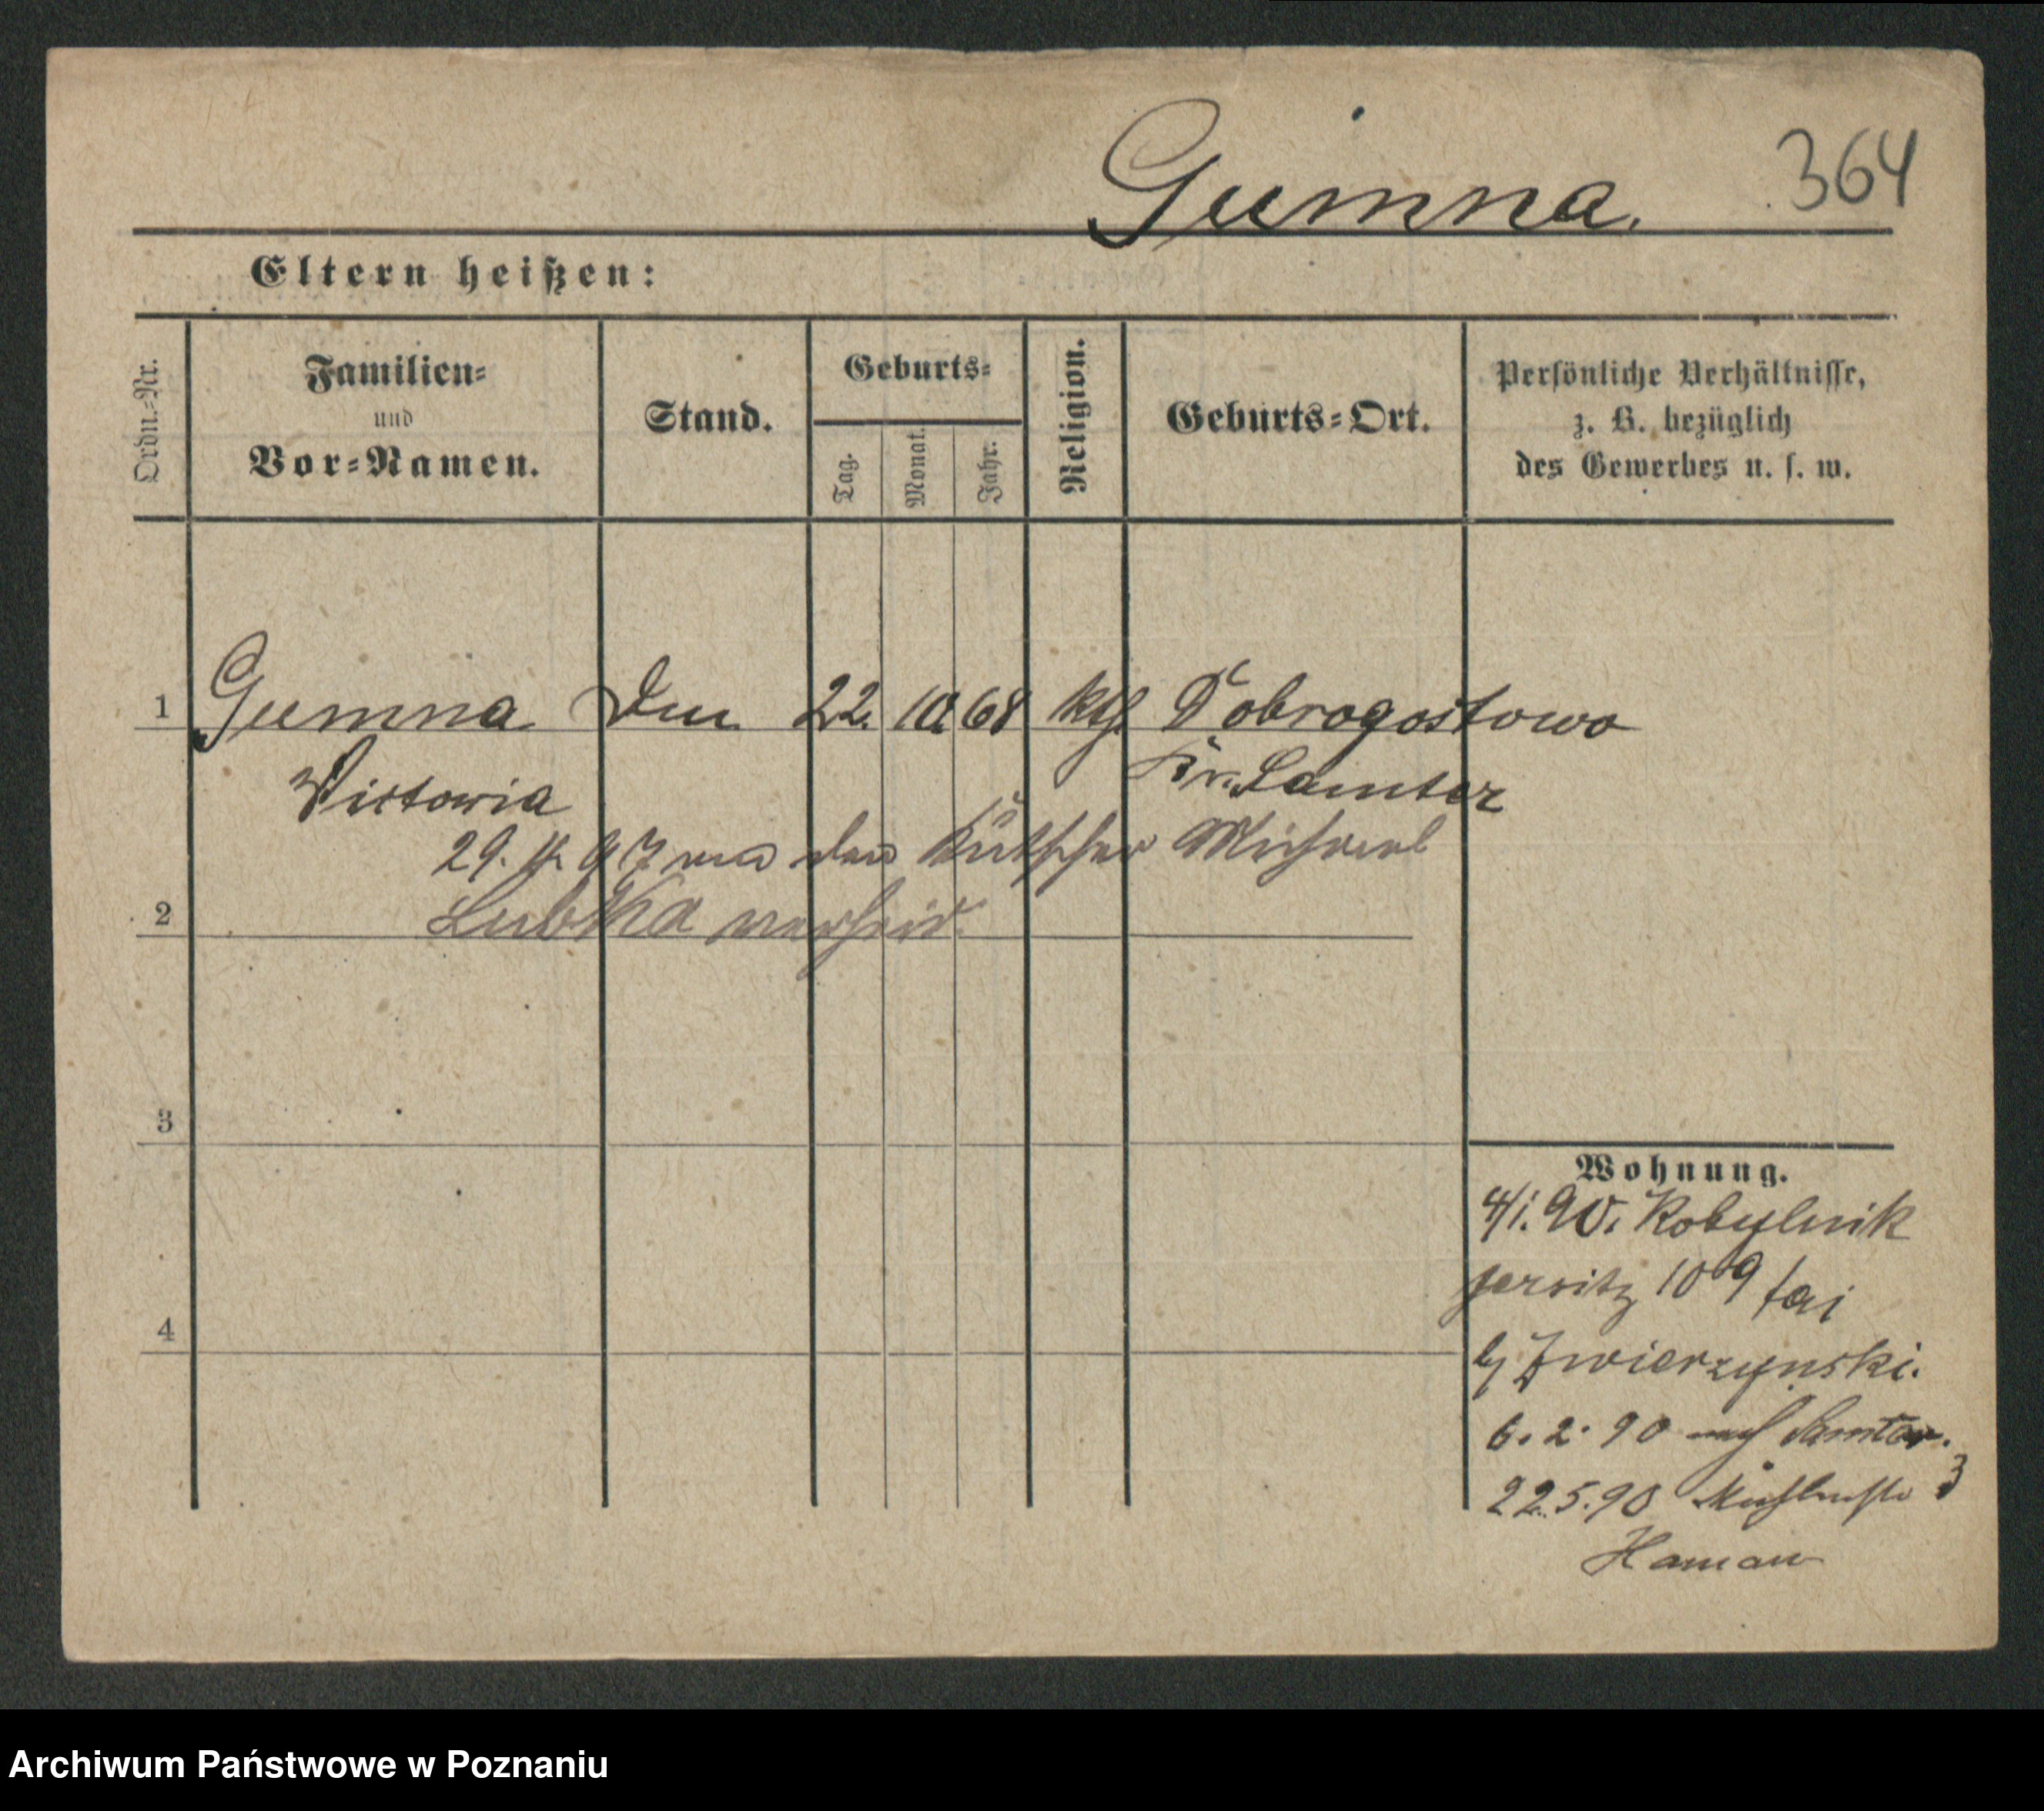 Gumna.
364
Eltern heißen:
Ordn.-Nr.
Familien-
und
Vor-Namen.
Stand.
Geburts-
Tag.
Monat.
Jahr.
Religion.
Geburts-Ort.
Persönliche Verhältnisse,
z. B. bezüglich
des Gewerbes u. s. w.
1 Gumna 22. 10. 68 kth. Dobrogostowo
Victoria Kr. Samter
29. 97 den Kutscher Michael
Lubka verheir.
2
3
4
Wohnung.
4/1. 90. Kobylnik
Jersitz 109
b/ Zwierzynski.
6. 2. 90 nach Samter.
22. 5. 90 Mühlenstr 3
Haman
Archiwum Państwowe w Poznaniu